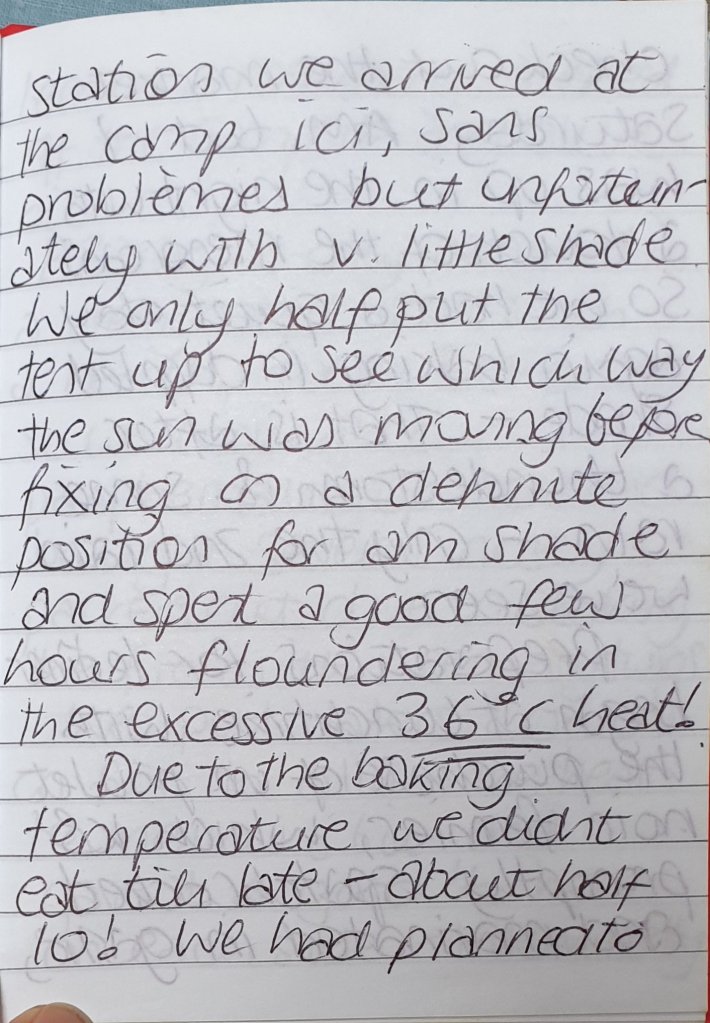 station we arrived at
the camp ici, sans
problèmes but unfortun-
ately with v. little shade.
We only half put the
tent up to see which way
the sun was moving before
fixing on a definite
position for am shade
and spent a good few
hours floundering in
the excessive 36°C heat!
Due to the baking
temperature we didnt
eat till late - about half
10! We had planned to